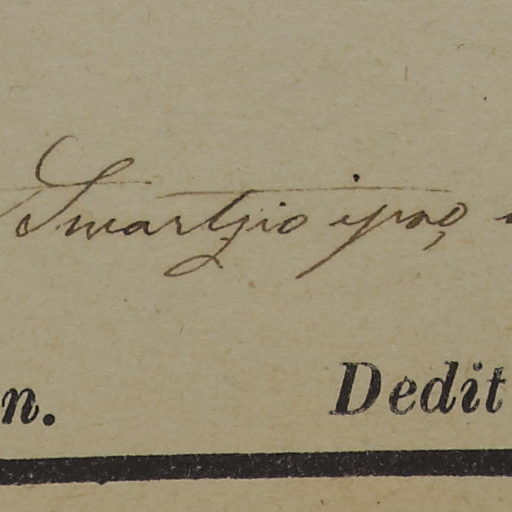 Smartzio ipso,
n. Dedit